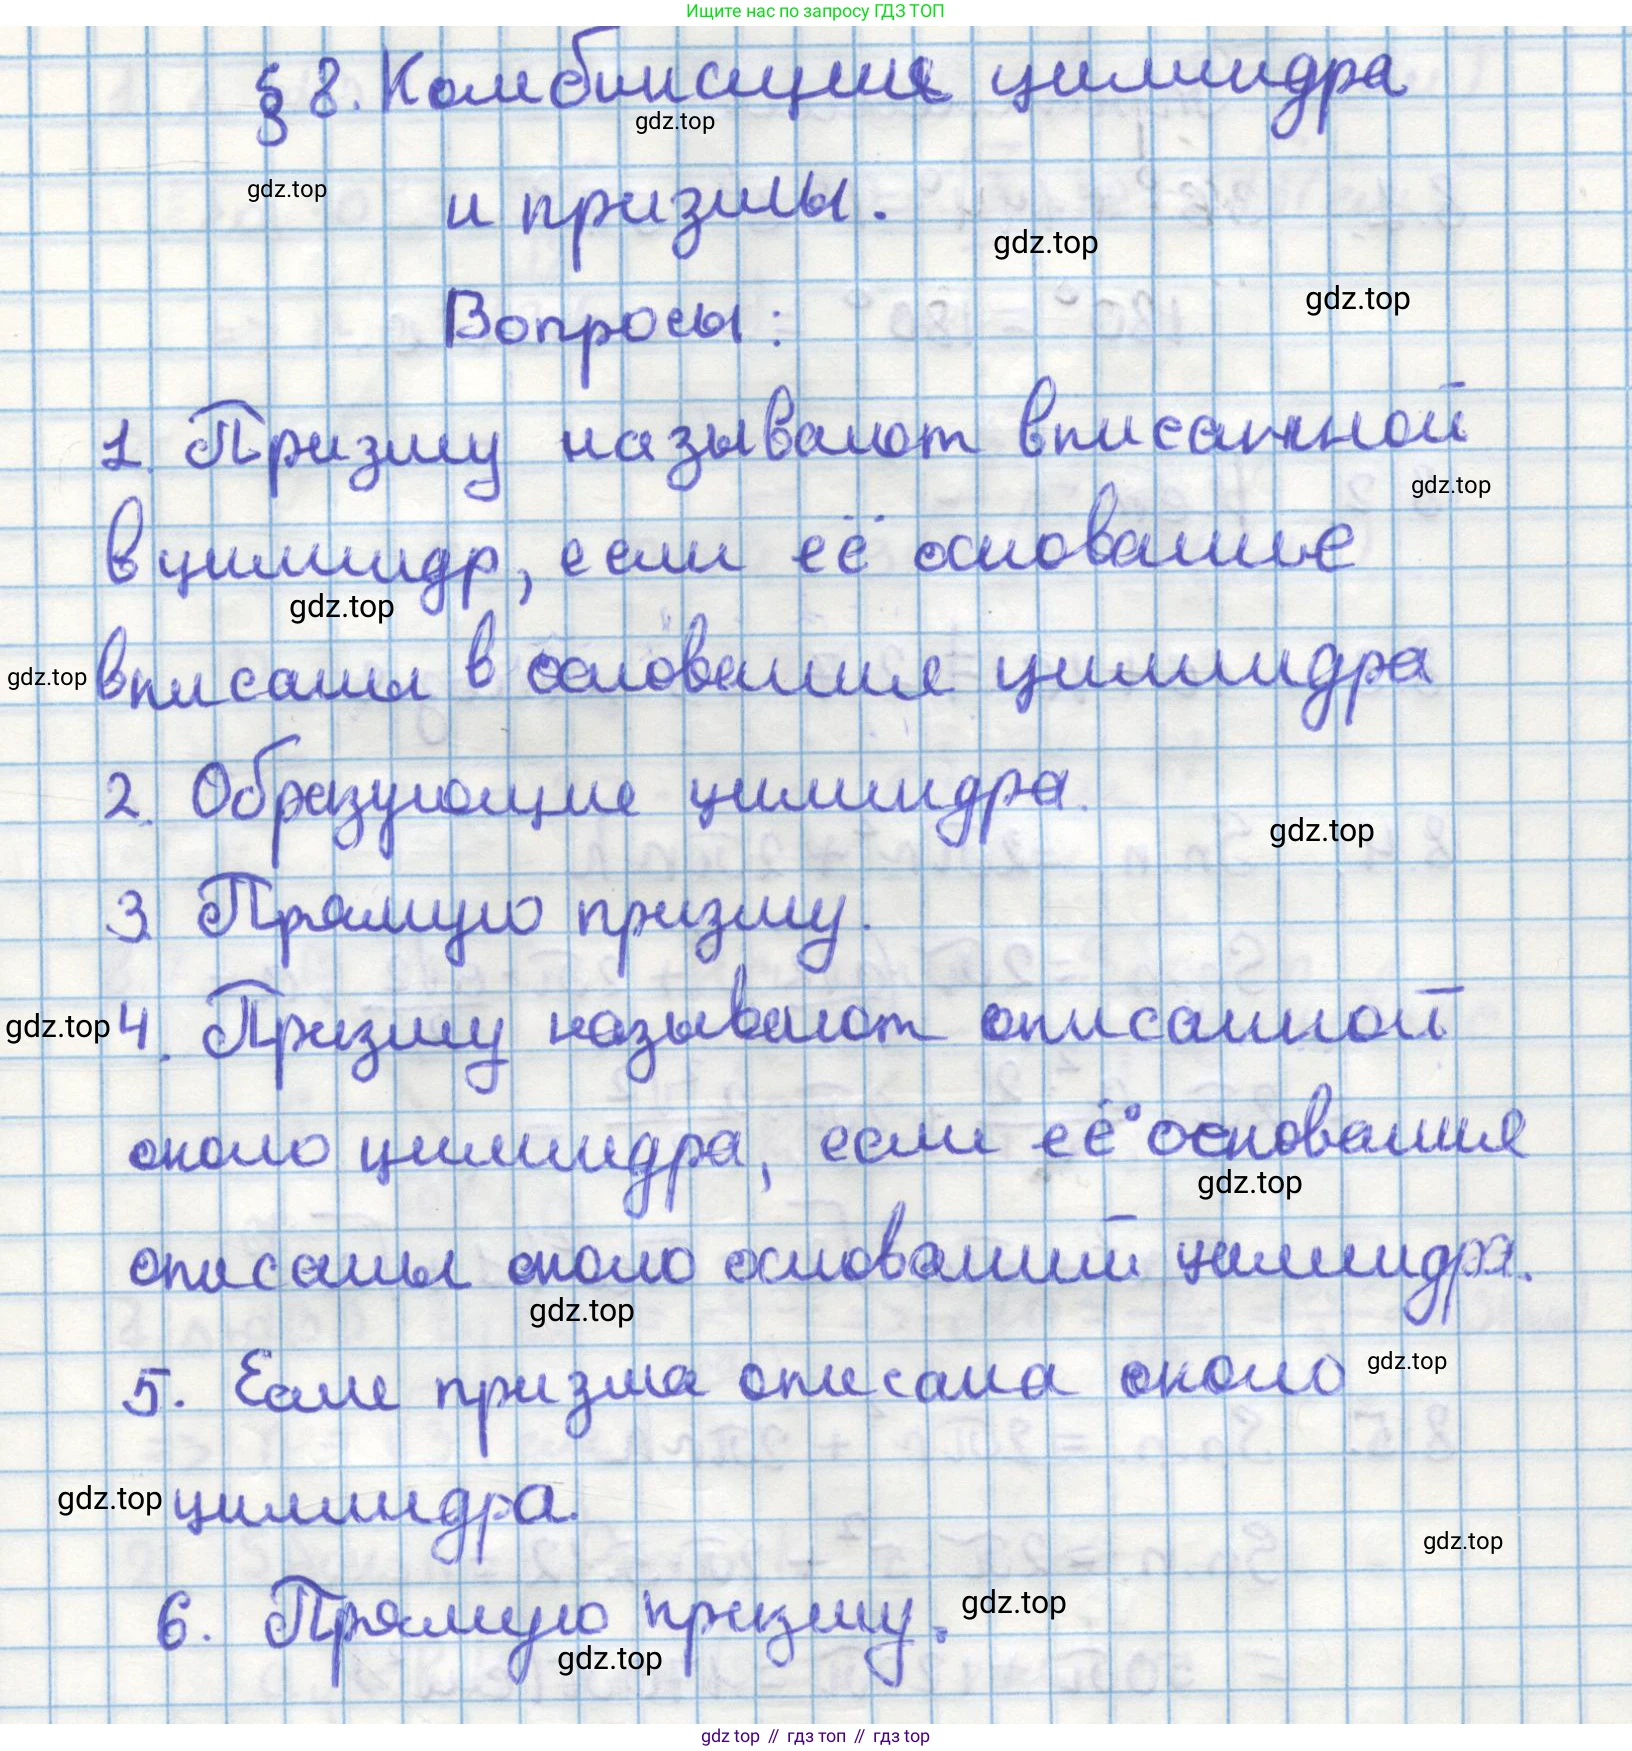 Ищите нас по запросу ГДЗ ТОП
§ 8. Комбинация цилиндра
gdz.top
gdz.top
и призмы.
gdz.top
Вопросы:
gdz.top
1. Призму называют вписанной
gdz.top
в цилиндр, если её основание
gdz.top
gdz.top
вписаны в основание цилиндра
2. Образующие цилиндра.
gdz.top
3. Прямую призму.
gdz.top
4. Призму называют описанной
около цилиндра, если её основания
gdz.top
описаны около оснований цилиндра.
gdz.top
5. Если призма описана около
gdz.top
gdz.top
цилиндра.
gdz.top
6. Прямую призму.
gdz.top
gdz.top
gdz.top // гдз топ // гдз top